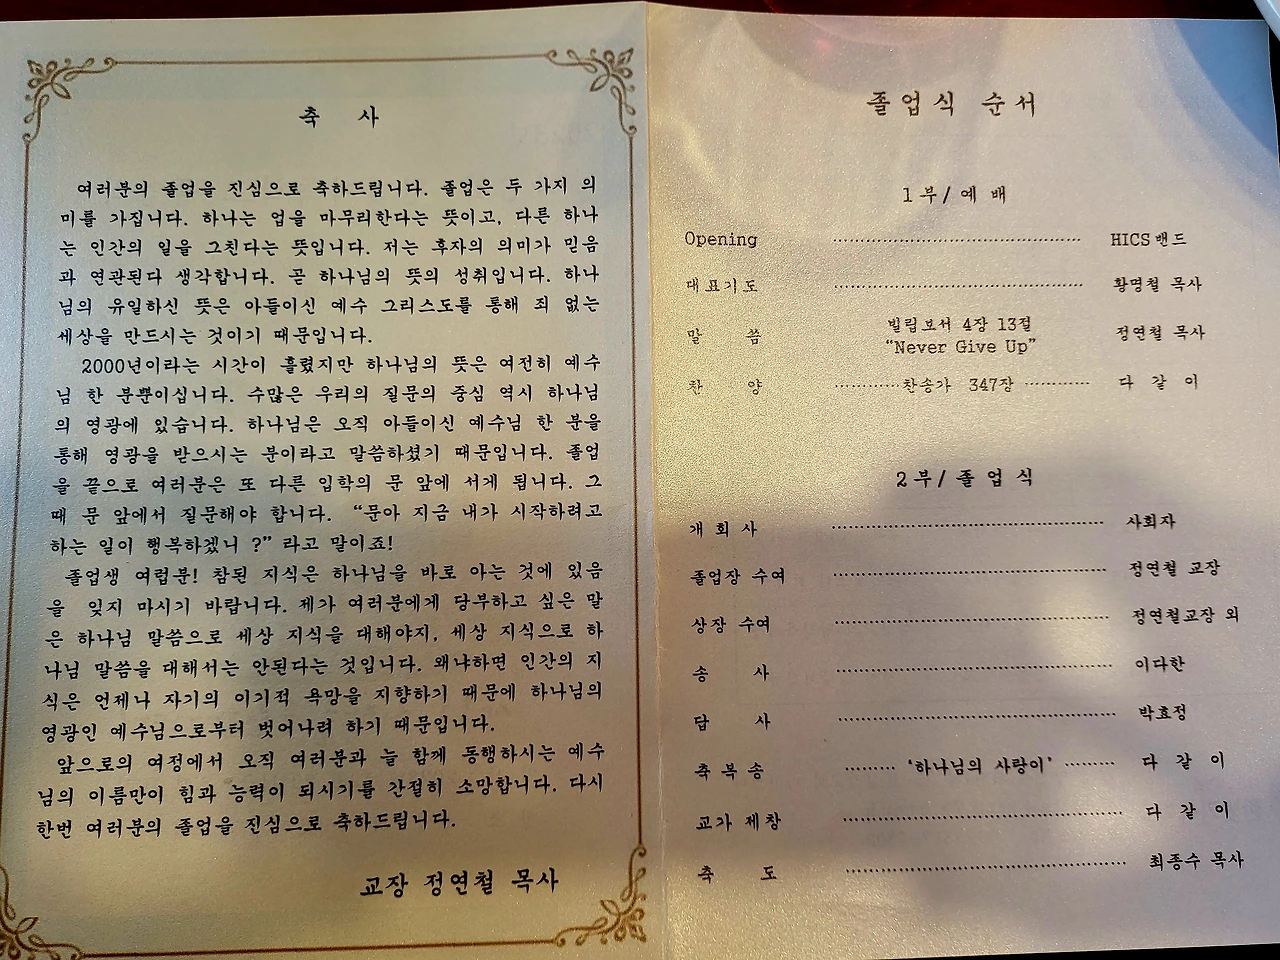 축 사
여러분의 졸업을 진심으로 축하드립니다. 졸업은 두 가지 의
미를 가집니다. 하나는 업을 마무리한다는 뜻이고, 다른 하나
는 인간의 일을 그친다는 뜻입니다. 저는 후자의 의미가 믿음
과 연관된다 생각합니다. 곧 하나님의 뜻의 성취입니다. 하나
님의 유일하신 뜻은 아들이신 예수 그리스도를 통해 죄 없는
세상을 만드시는 것이기 때문입니다.
2000년이라는 시간이 흘렀지만 하나님의 뜻은 여전히 예수
님 한 분뿐이십니다. 수많은 우리의 질문의 중심 역시 하나님
의 영광에 있습니다. 하나님은 오직 아들이신 예수님 한 분을
통해 영광을 받으시는 분이라고 말씀하셨기 때문입니다. 졸업
을 끝으로 여러분은 또 다른 입학의 문 앞에 서게 됩니다. 그
때 문 앞에서 질문해야 합니다. “문아 지금 내가 시작하려고
하는 일이 행복하겠니 ?” 라고 말이죠!
졸업생 여럽분! 참된 지식은 하나님을 바로 아는 것에 있음
을 잊지 마시기 바랍니다. 제가 여러분에게 당부하고 싶은 말
은 하나님 말씀으로 세상 지식을 대해야지, 세상 지식으로 하
나님 말씀을 대해서는 안된다는 것입니다. 왜냐하면 인간의 지
식은 언제나 자기의 이기적 욕망을 지향하기 때문에 하나님의
영광인 예수님으로부터 벗어나려 하기 때문입니다.
앞으로의 여정에서 오직 여러분과 늘 함께 동행하시는 예수
님의 이름만이 힘과 능력이 되시기를 간절히 소망합니다. 다시
한번 여러분의 졸업을 진심으로 축하드립니다.
교장 정연철 목사
졸업식 순서
1부/예배
Opening ........................................ HICS밴드
대표기도 ........................................ 황명철 목사
말 씀 빌립보서 4장 13절 정연철 목사
“Never Give Up”
찬 양 ..........찬송가 347장 .......... 다 같 이
2부/졸업식
개 회 사 ........................................ 사회자
졸업장 수여 ........................................ 정연철 교장
상장 수여 ........................................ 정연철교장 외
송 사 ........................................ 이다한
답 사 ........................................ 박효정
축 복 송 ........ ‘하나님의 사랑이’ ........ 다 같 이
교가 제창 ........................................ 다 같 이
축 도 ........................................ 최종수 목사